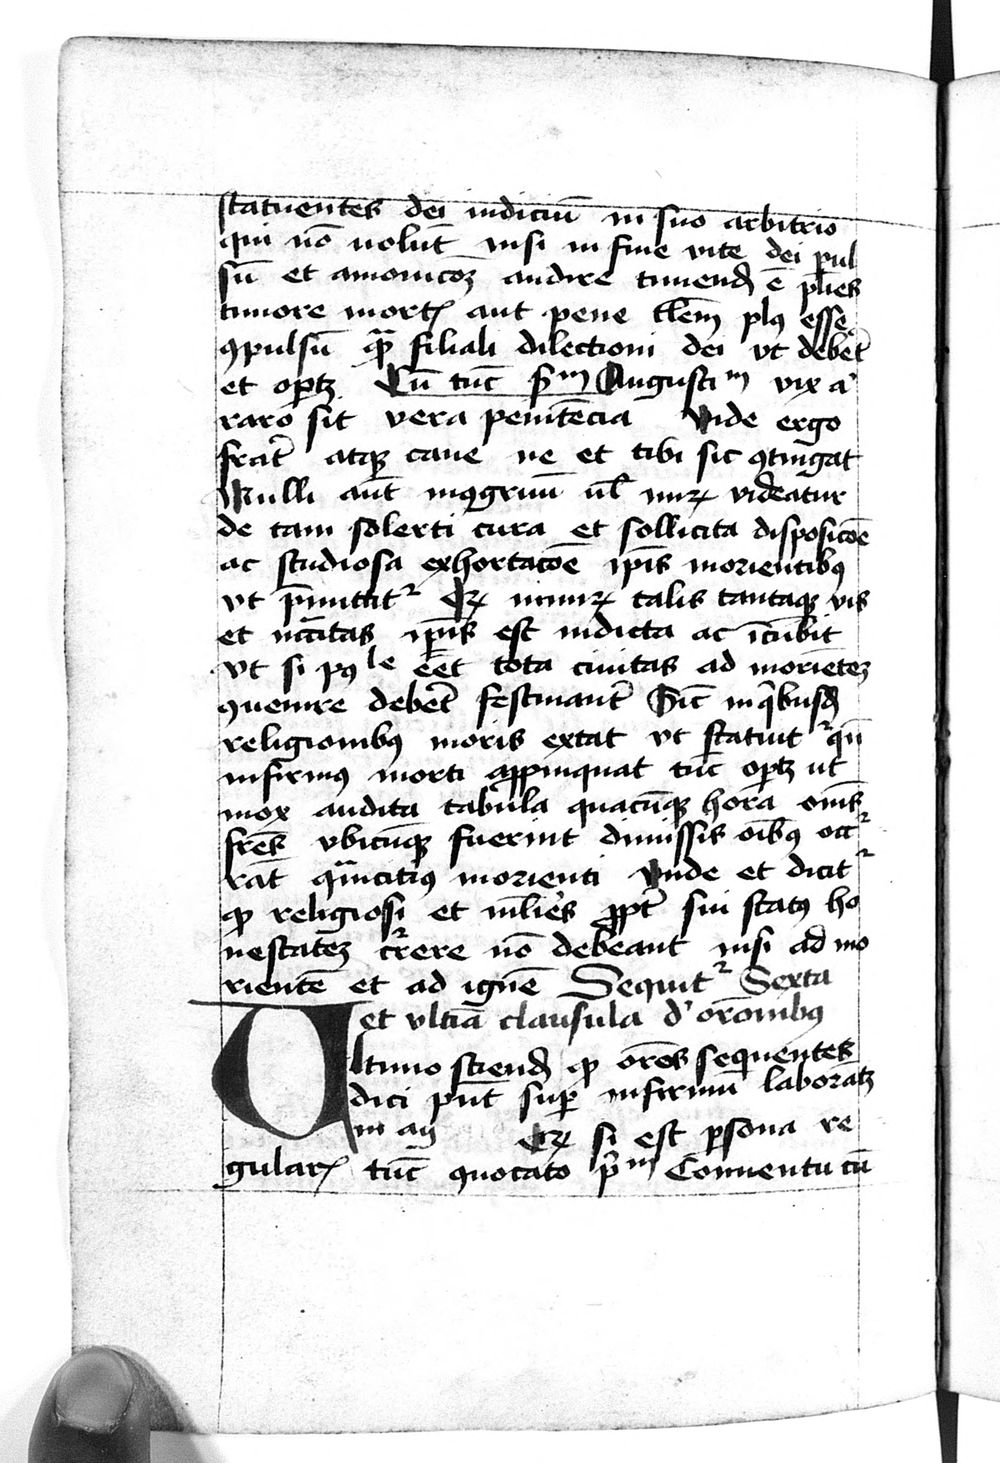 statuentes dei iudiciū in suo arbitrio
qui nō uolūt nisi in fine vite dei pul
sū et amonicōꝫ audire timend̄ ē pl̄ies
timore mort̄ꝭ aut pene tl̄em plꝰ esse
ꝯpulsū qᷓ filiali dilectioni dei vt debet̄
et op̄tꝫ Cū tūc sᵐ Augustīᵐ vix a̓
raro sit vera penitēcia Vide ergo
frat̄ atqꝫ caue ne et tibi sic ꝯtingat
Nulli aūt inꝯgruū ul̄ mirꝝ videatur
de tam solerti cura et sollicita disposicōe
ac studiosa exhortacōe ip̄is morientibꝰ
vt p̄mittit᷑ Qꝛ nimirꝝ talis tantaqꝫ vis
et nc̄citas ip̄is est indicta ac īcumbit
vt si poˡᵉ eēt tota ciuitas ad moriētēꝫ
ꝯuenire debet̄ festinant̄ Sic̄ in qͥbusd̄
religionibꝰ moris extat vt statuit᷑ qn̄
infirmꝰ morti apꝓpinquat tūc op̄tꝫ ut
mox audita tabula quacūqꝫ hora om̄s
fr̄es vbicūqꝫ fuerint dimissis oībꝰ occ᷑
rāt qᷓntociꝰ morienti Vnde et dicit᷑
ꝙ religiosi et ml̄ies ꝓpt̄ sui statꝰ ho
nestateꝫ cᷓrere nō debeant nisi ad mo
rientē et ad ignē Sequit᷑ Sexta
et vltīa clausula d̓ orōnibꝰ
Vltimo sciend̄ ꝙ orōes sequentes
dici pn̄t suꝑ infirmū laboratꝫ
in aḡ Qꝛ si est ꝑsona re
gularꝭ tūc ꝯuocato p̄ᵐ Conuentu cū